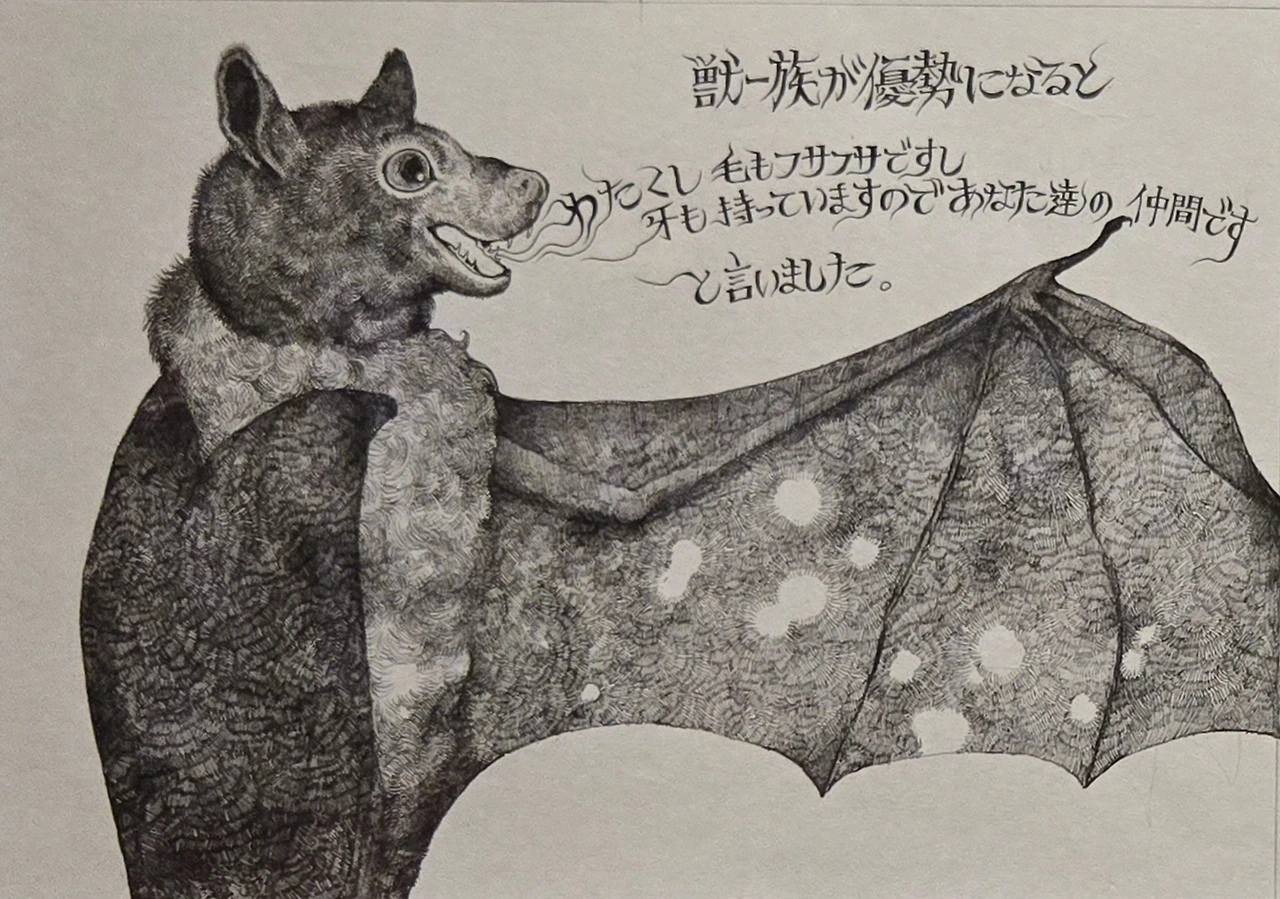 獣一族が優勢になると
わたくし 毛もフサフサですし
牙も持っていますのであなた達の 仲間です
と言いました。